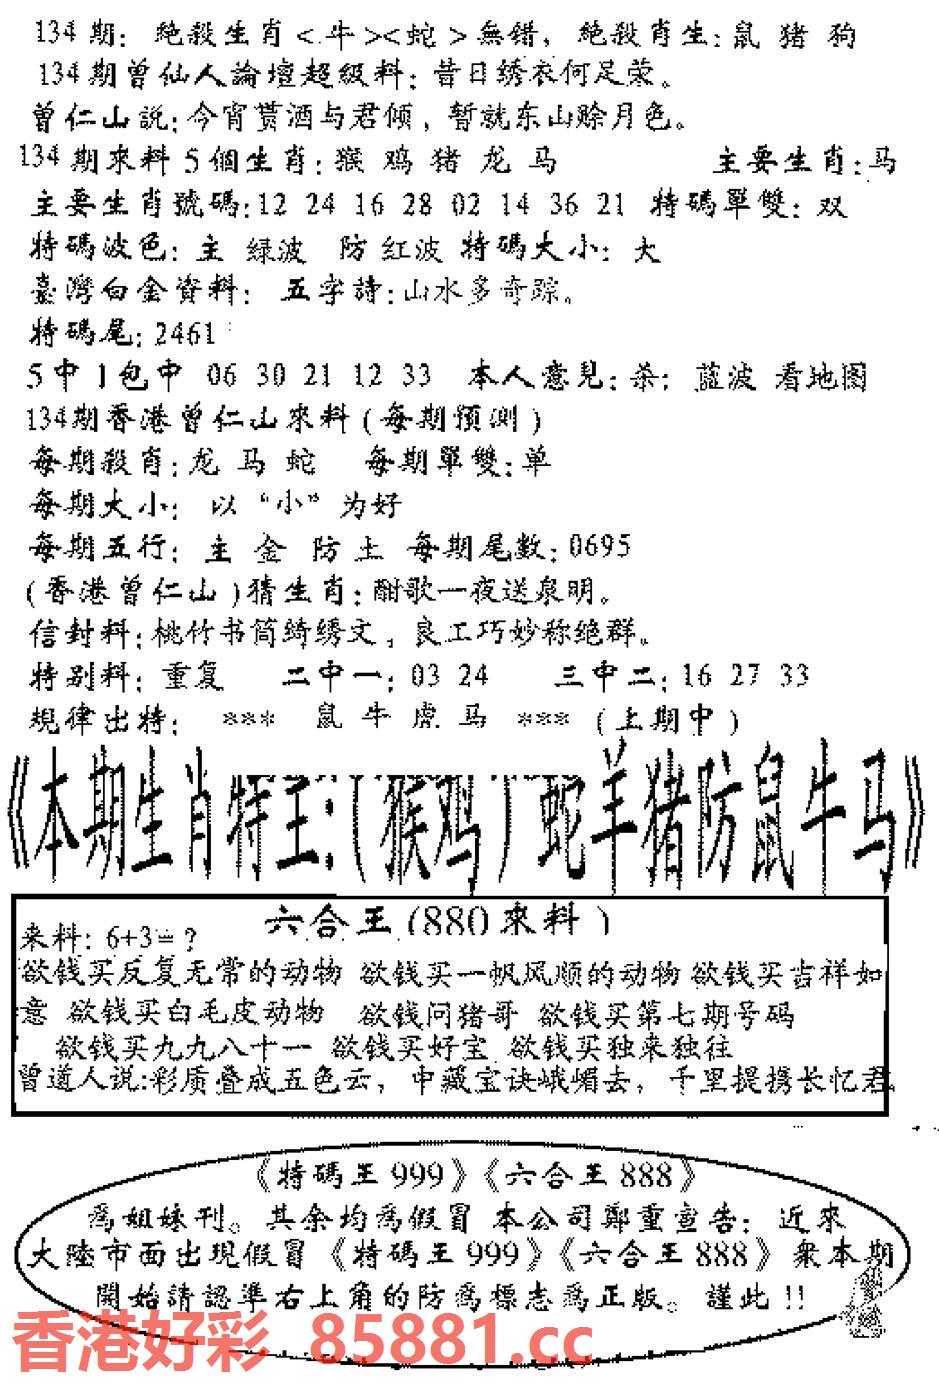 134期: 絶殺生肖<.牛><蛇>無错, 絶殺肖生:鼠 猪 狗
134期曾仙人論壇超級料:昔日绣衣何足荣。
曾仁山説:今宵贳酒与君倾, 暂就东山赊月色。
134期來料5個生肖:猴 鸡 猪 龙 马 主要生肖:马
主要生肖號碼:12 24 16 28 02 14 36 21 特碼單雙: 双
特碼波色: 主 绿波 防 红波 特碼大小: 大
臺灣白金資料: 五字詩:山水多奇踪。
特碼尾: 2461
5中1包中 06 30 21 12 33 本人意見: 恭: 蓝波 看地图
134期香港曾仁山來料(每期預測)
每期殺肖:龙 马 蛇 每期單雙:单
每期大小: 以“小”为好
每期五行: 主 金 防 土 每期尾數:0695
(香港曾仁山)猜生肖:酣歌一夜送泉明。
信封料:桃竹书筒绮绣文, 良工巧妙称绝群。
特别料: 重复 二中一: 03 24 三中二:16 27 33
規律出特: *** 鼠 牛 虎 马 *** (上期中)
《本期生肖特主:(猴鸡)蛇羊猪防鼠牛马》
六合王(880來料)
来料: 6+3=?
欲钱买反复无常的动物 欲钱买一帆风顺的动物 欲钱买吉祥如
意 欲钱买白毛皮动物 欲钱问猪哥 欲钱买第七期号码
欲钱买九九八十一 欲钱买好宝 欲钱买独来独往
曾道人说:彩质叠成五色云, 中藏宝诀峨嵋去, 千里提携长忆君
《特碼王999》《六合王888》
爲姐妹刊。其余均爲假冒 本公司鄭重宣告: 近來
大陸市面出現假冒《特碼王999》《六合王888》衆本期
開始請認準右上角的防爲標志爲正版。謹此!!
香港好彩 85881.cc